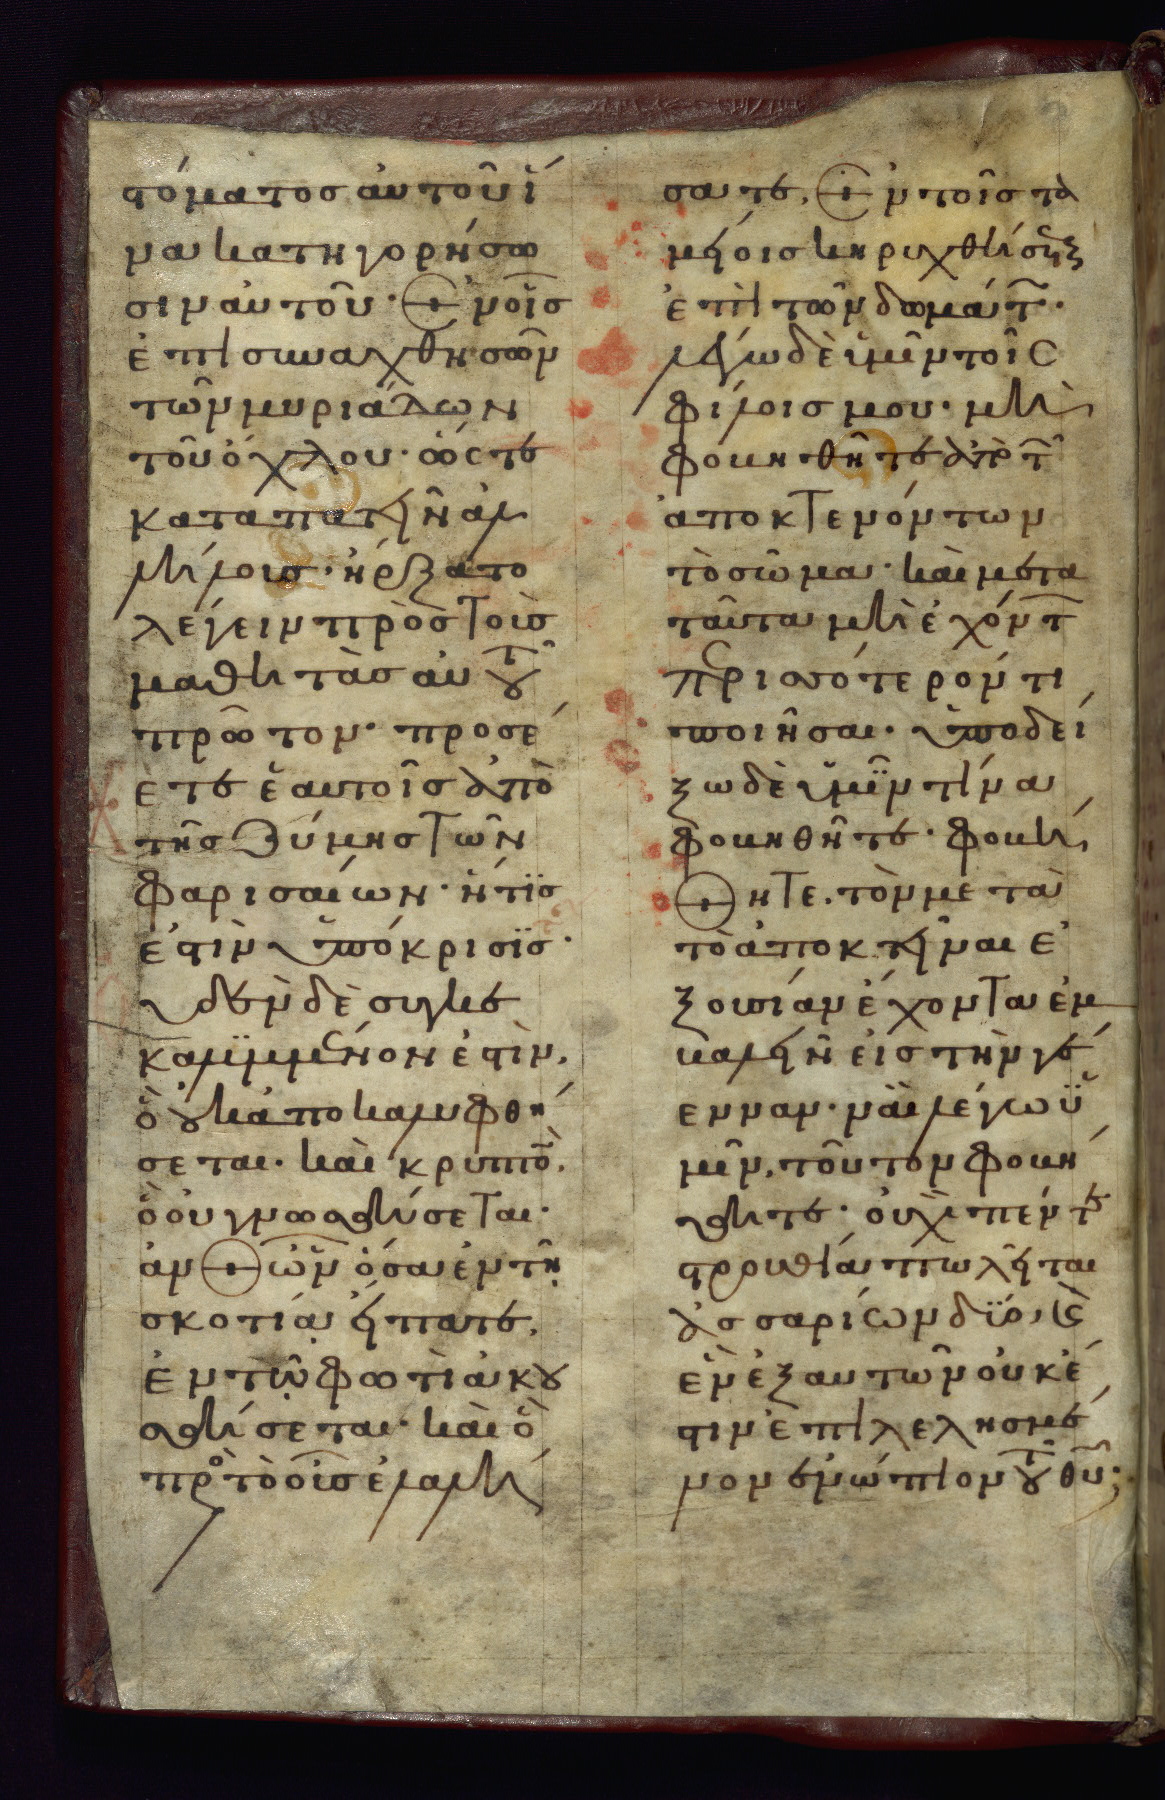 στόματος αὐτοῦ ἵ
να κατηγορήσω
σιν αὐτοῦ· Ἐν οἷς
ἐπισυναχθησῶν
τῶν μυριάδων
τοῦ ὄχλου· ὥστε
καταπατεῖν ἀλ
λήλοις· ἤρξατο
λέγειν πρὸς τοὺς
μαθητὰς αὐτοῦ
πρῶτον· προσέ
ετε ἑαυτοῖς ἀπὸ
τῆς ζύμης τῶν
φαρισαίων· ἥτις
ἐστὶν ὑπόκρισις·
οὐδὲν δὲ συγκε
καλυμμένον ἐστὶν,
ὃ οὐκ ἀποκαλυφθή
σεται· καὶ κρυπτὸν,
ὃ οὐ γνωσθήσεται·
ἀνθ ὧν ὅσα ἐν τῇ
σκοτίᾳ εἴπατε,
ἐν τῷ φωτὶ ἀκου
σθήσεται· καὶ ὃ
πρὸς τὸ οὖς ἐλαλή
σατε, ἐν τοῖς τα
μείοις κηρυχθήσεται
ἐπὶ τῶν δωμάτων·
λέγω δὲ ὑμῖν τοῖς
φίλοις μου· μὴ
φοβηθῆτε ἀπὸ τῶν
ἀποκτενόντων
τὸ σῶμα· καὶ μετα
ταῦτα μὴ ἐχόντων
περισσότερόν τι
ποιῆσαι· ὑποδεί
ξω δὲ ὑμῖν τίνα
φοβηθῆτε· φοβή
θητε τὸν μετὰ
τὸ ἀποκτεῖναι ἐ
ξουσίαν ἔχοντα ἐμ
βαλεῖν εἰς τὴν γέ
ενναν· ναὶ λέγω ὑ
μῖν, τοῦτον φοβή
θητε· οὐχὶ πέντε
στρουθία πωλεῖται
ἀσσαρίων δύο, καὶ
ἓν ἐξ αὐτῶν οὐκ ἔ
στιν ἐπιλελησμέ
νον ἐνώπιον τοῦ θυ;